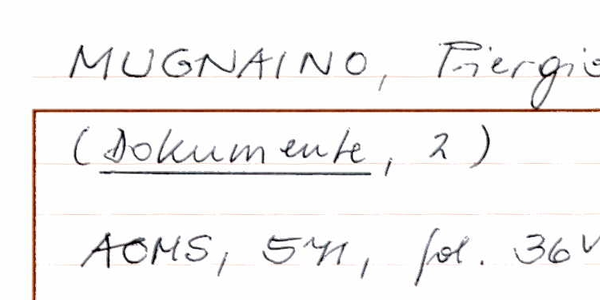 MUGNAINO, Piergio
(Dokumente, 2)
AOMS, 571, fol. 36v